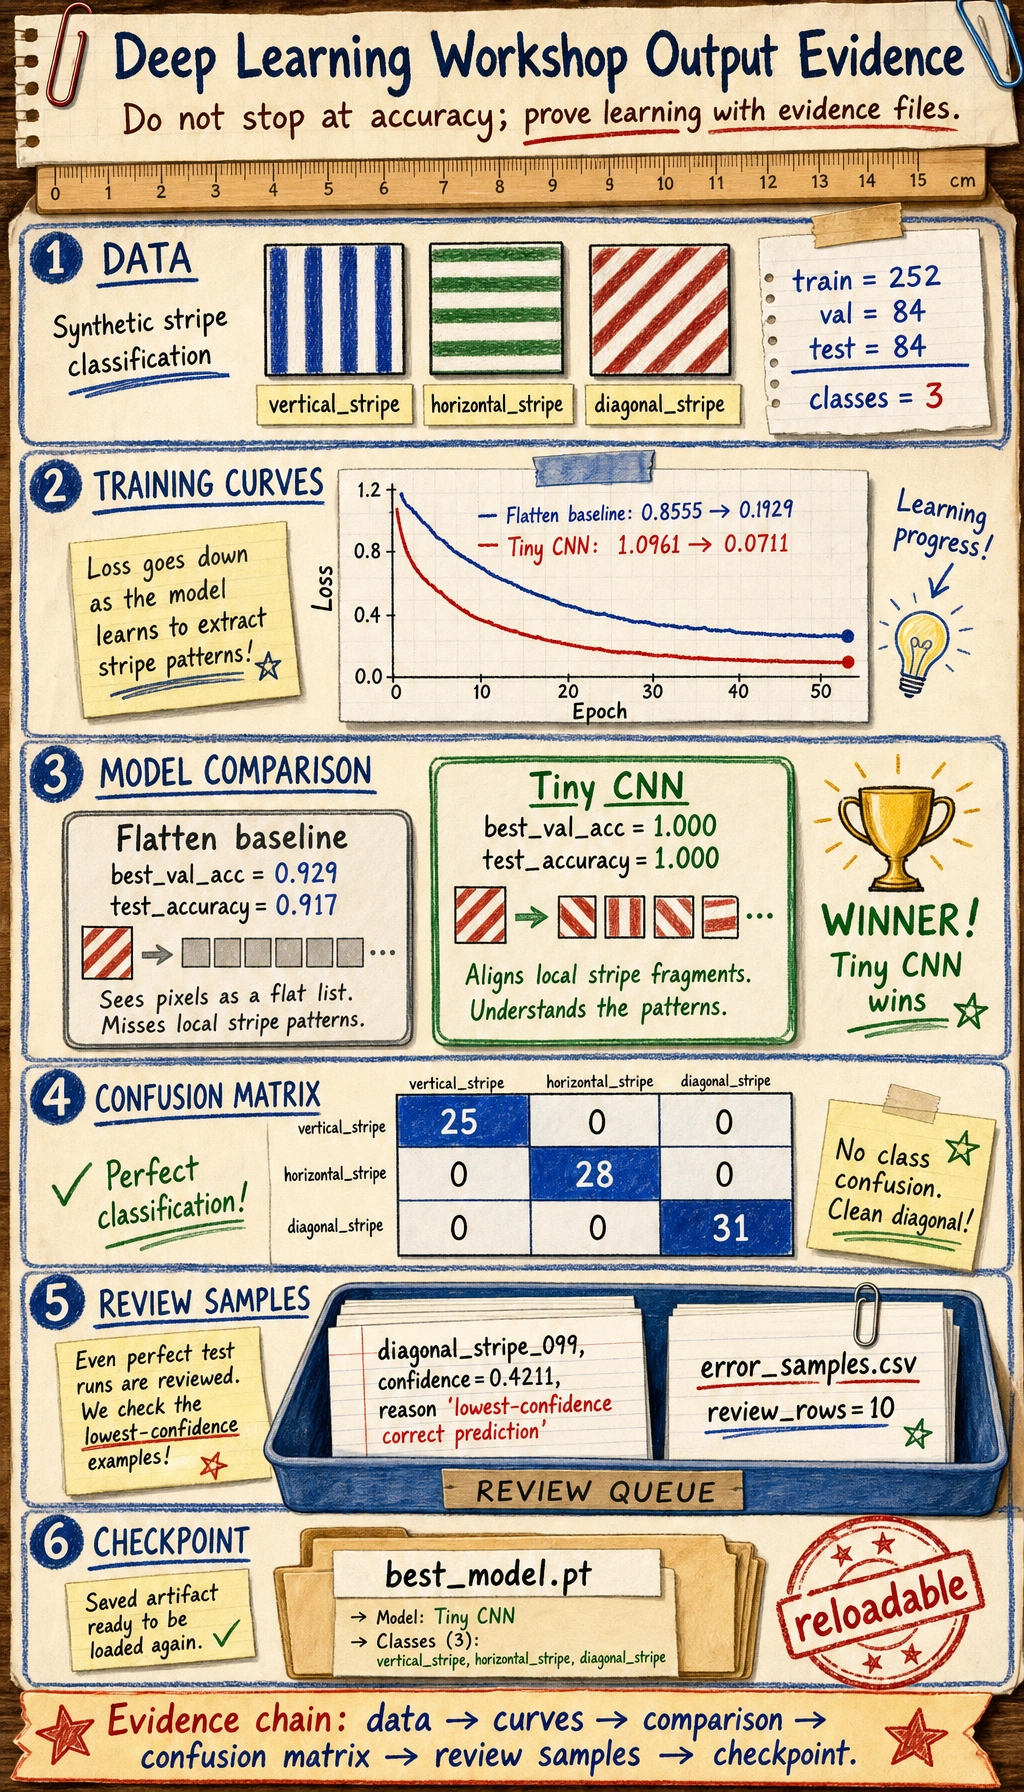 Deep Learning Workshop Output Evidence
Do not stop at accuracy; prove learning with evidence files.
0 1 2 3 4 5 6 7 8 9 10 11 12 13 14 15 cm
1 DATA
Synthetic stripe
classification
vertical_stripe
horizontal_stripe
diagonal_stripe
train = 252
val = 84
test = 84
classes = 3
2 TRAINING CURVES
Loss goes down
as the model
learns to extract
stripe patterns!
Loss
1.2
0.8
0.4
0.0
Flatten baseline: 0.8555 → 0.1929
Tiny CNN: 1.0961 → 0.0711
0 10 20 30 40 50
Epoch
Learning
progress!
3 MODEL COMPARISON
Flatten baseline
best_val_acc = 0.929
test_accuracy = 0.917
→ ...
Sees pixels as a flat list.
Misses local stripe patterns.
Tiny CNN
best_val_acc = 1.000
test_accuracy = 1.000
→ ...
Aligns local stripe fragments.
Understands the patterns.
WINNER!
Tiny CNN
wins
4 CONFUSION MATRIX
✓ Perfect
classification!
vertical_stripe horizontal_stripe diagonal_stripe
vertical_stripe 25 0 0
horizontal_stripe 0 28 0
diagonal_stripe 0 0 31
No class
confusion.
Clean diagonal!
5 REVIEW SAMPLES
Even perfect test
runs are reviewed.
We check the
lowest-confidence
examples!
diagonal_stripe_099,
confidence = 0.4211,
reason 'lowest-confidence
correct prediction'
error_samples.csv
review_rows = 10
REVIEW QUEUE
6 CHECKPOINT
Saved artifact
ready to be
loaded again. ✓
best_model.pt
→ Model: Tiny CNN
→ Classes (3):
vertical_stripe, horizontal_stripe, diagonal_stripe
reloadable
Evidence chain: data → curves → comparison →
confusion matrix → review samples → checkpoint.